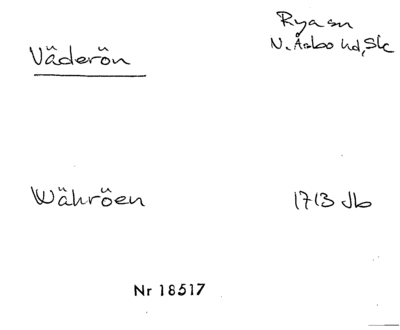 Väderön
Rya sn
N. Åsbo hd, Sk
Währöen
1713 Jb
Nr 18517